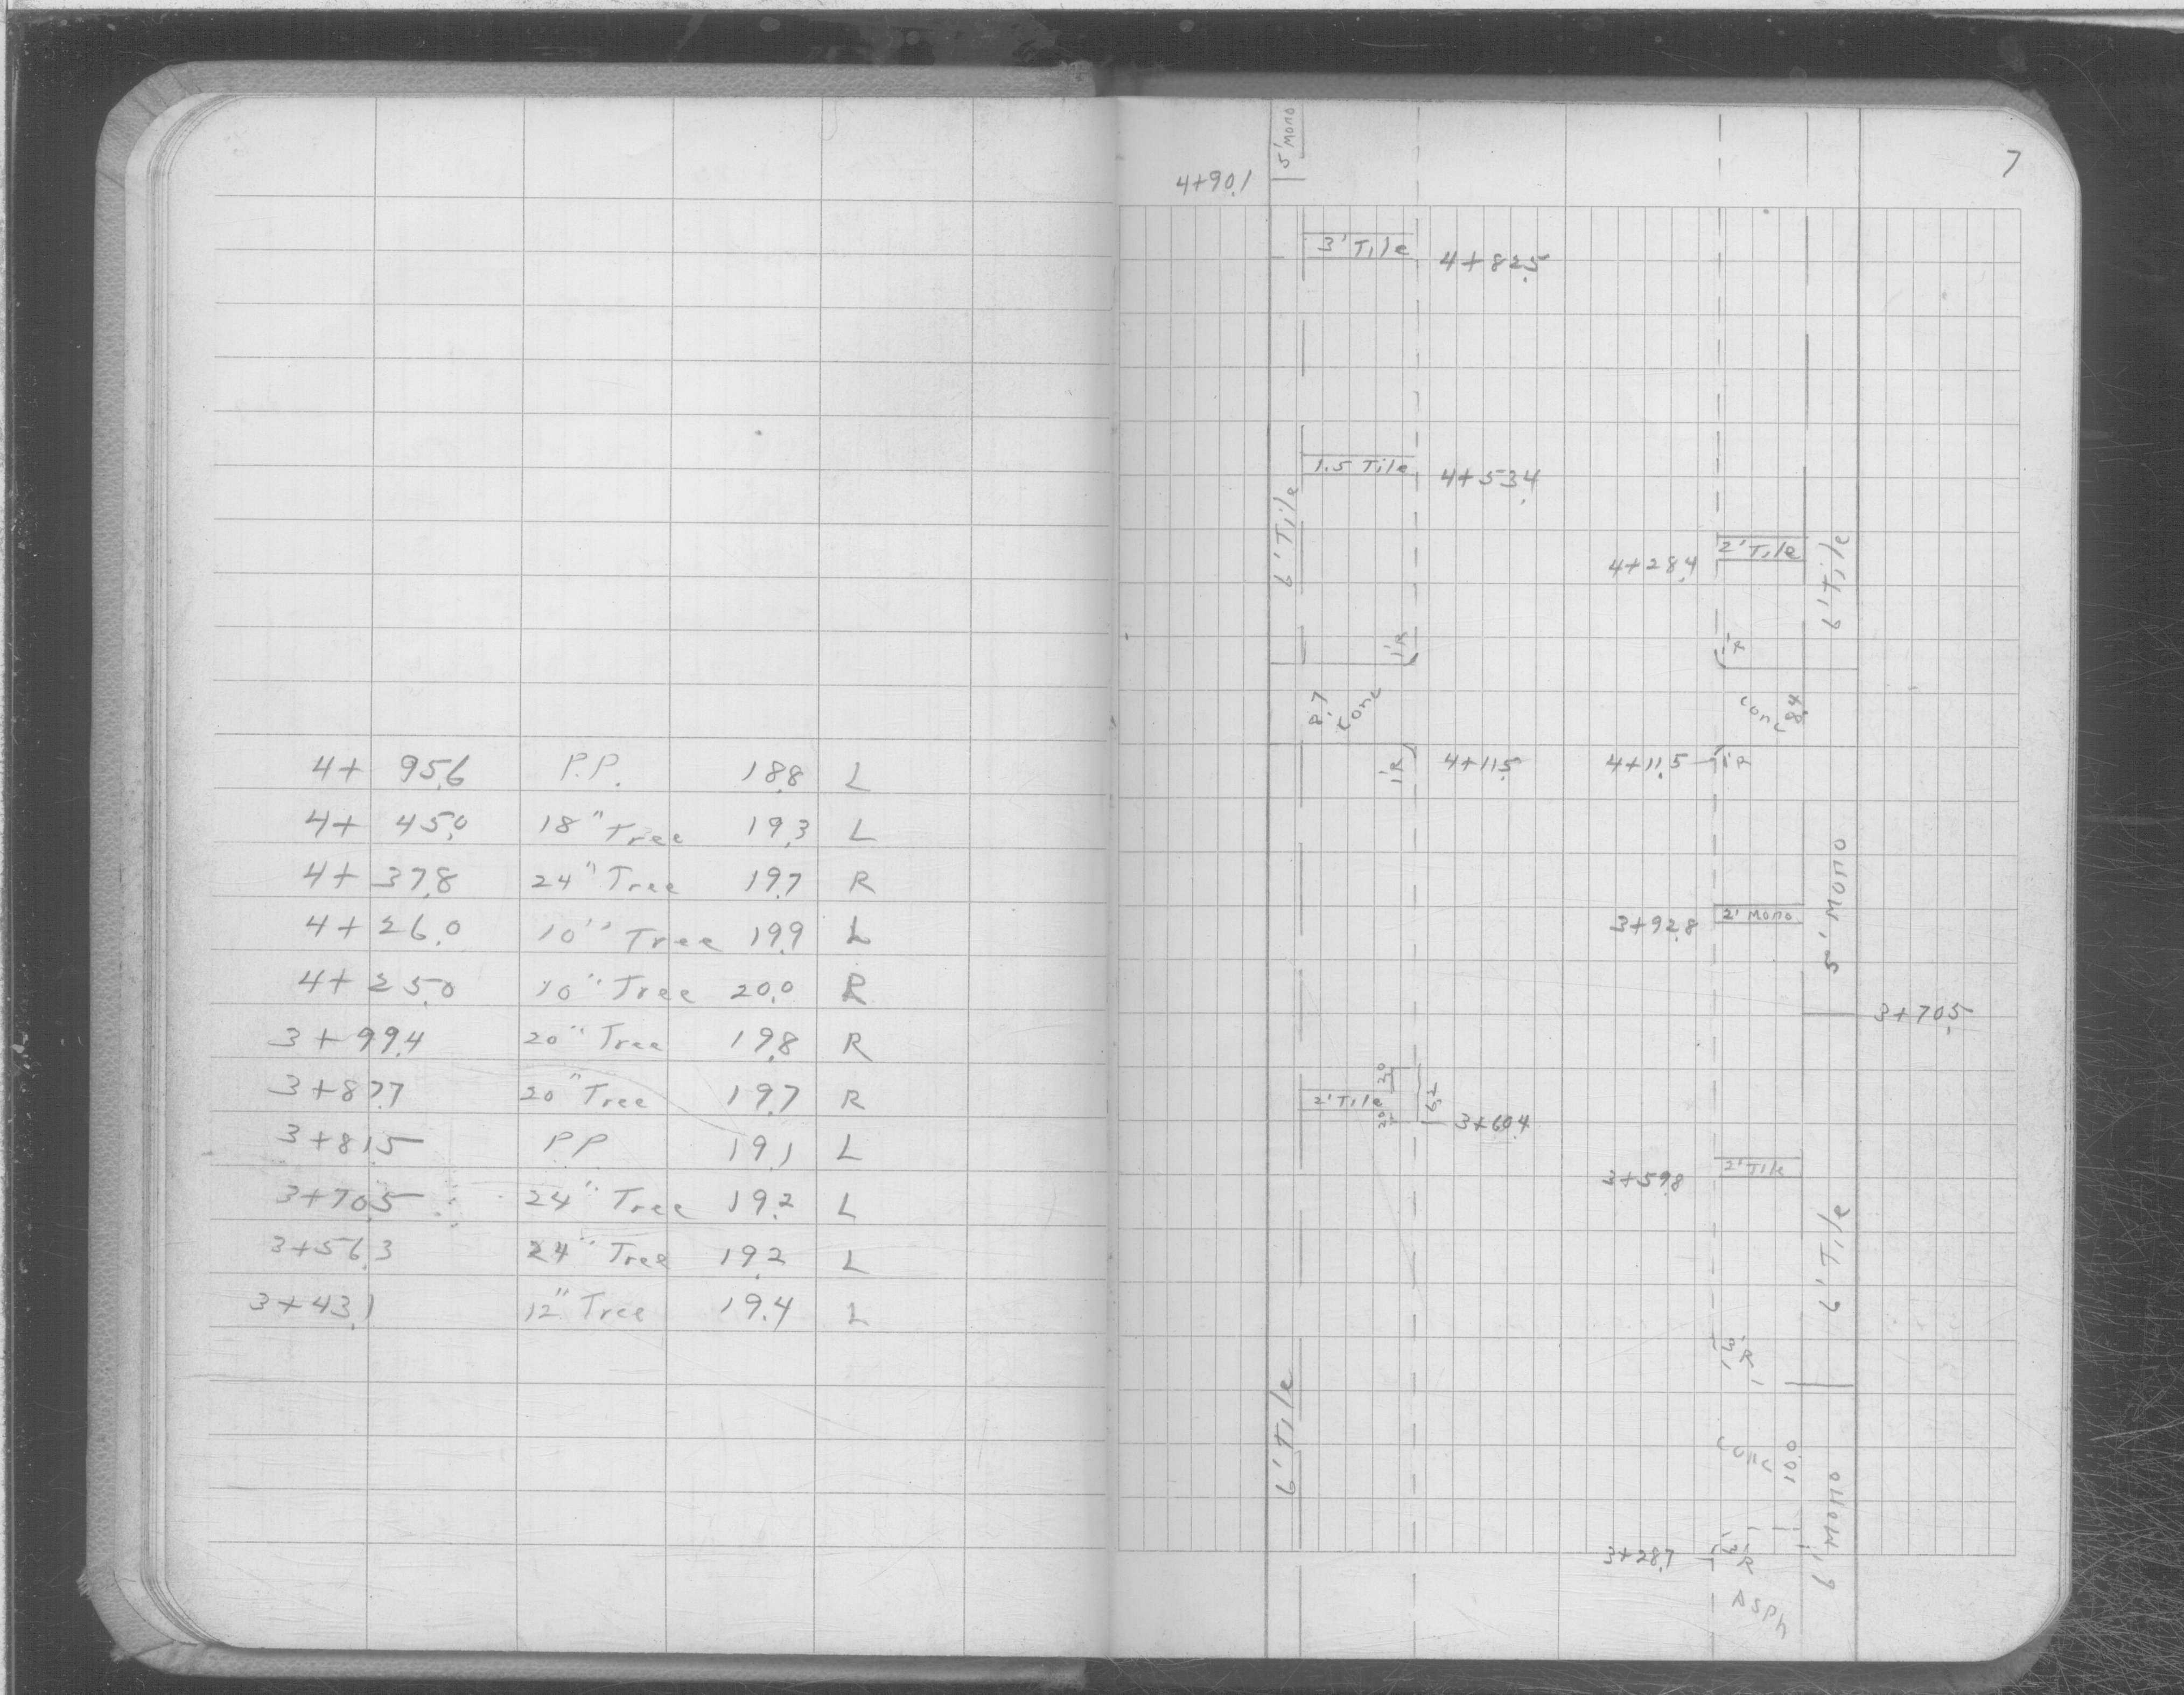 4+ 95.6 P.P. 18.8 L
4+ 45.0 18" Tree 19.3 L
4+ 37.8 24" Tree 19.7 R
4+ 26.0 10" Tree 19.9 L
4+ 25.0 10" Tree 20.0 R
3+ 99.4 20" Tree 19.8 R
3+87.7 20" Tree 19.7 R
3+81.5 PP 19.1 L
3+70.5 24" Tree 19.2 L
3+56.3 24" Tree 19.2 L
3+43.1 12" Tree 19.4 L
7
5' Mono
4+90.1
3' Tile 4+82.5
1.5 Tile 4+53.4
6' Tile
4+28.4 2' Tile
6' Tile
1'R
1'R
8.7 Conc
Conc 8.4
1'R 4+11.5
4+11.5 1'R
5' Mono
3+92.8 2' Mono
3+70.5
2' Tile 2.0 2.0 6.2 3+60.4
3+59.8 2' Tile
6' Tile
13'R
6' Tile
Conc 10.0
6' Mono
3+28.7 13'R
Asph